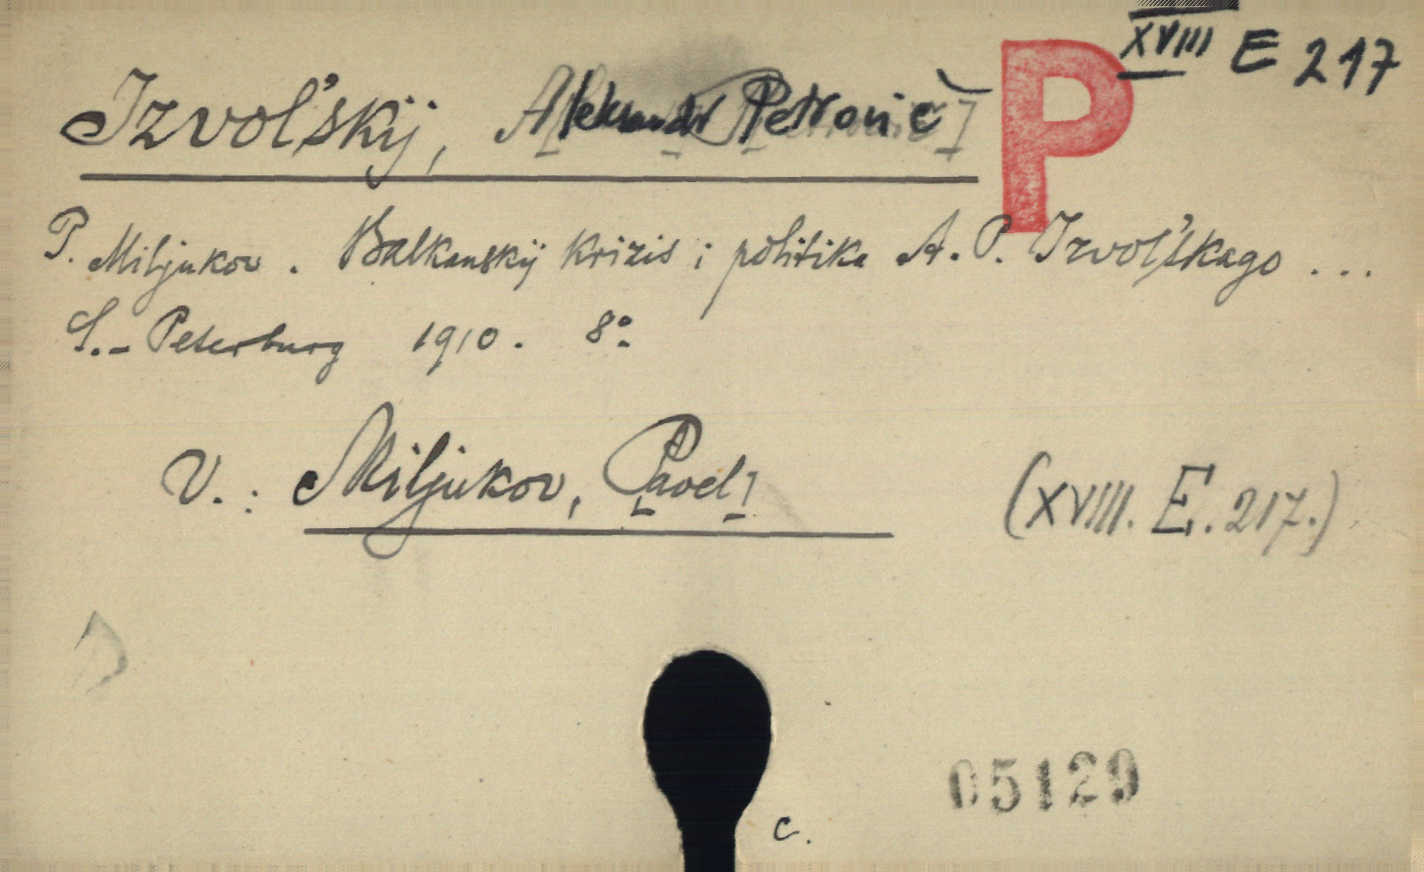 XVIII E 217
P
Izvol'skij, Aleksandr Petrovič]
P. Miljukov. Balkanskij krizis i politika A. P. Izvol'skago ...
S.-Peterburg 1910. 8º
V.: Miljukov, Pavel]
(XVIII. E. 217.)
05129
c.